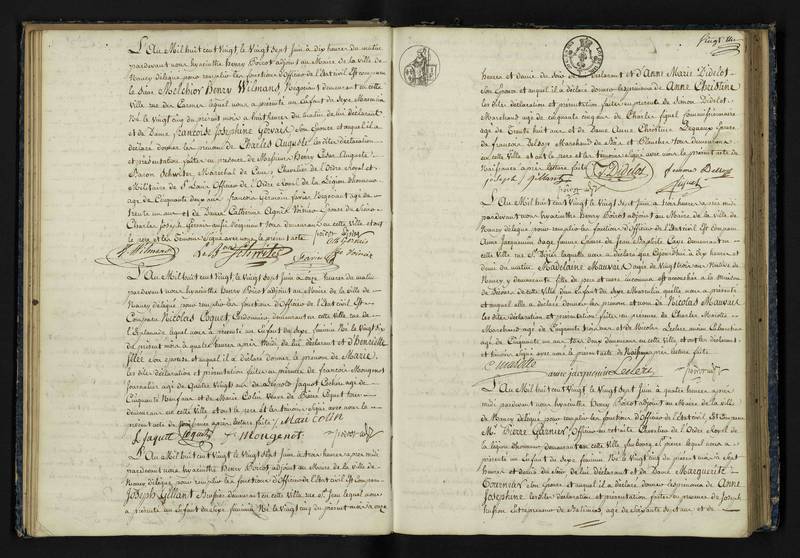 L'An Mil huit cent Vingt, le Vingt sept Juin à dix heures du matin
pardevant nous hyacinthe Henry Poirot adjoint au Maire de la Ville de
Nancy délégué pour remplir les fonctions d'Officier de l'Etat civil Est comparu
le Sieur Melchior Henry Wilmans, Negociant demeurant en cette
Ville rue des Carmes lequel nous a présenté un Enfant du Sexe Masculin
Né le Vingt cinq du présent mois à huit heures du matin de lui déclarant
et de Dame françoise Josephine Gervais son Epouse et auquel il a
déclaré donner les prénoms de Charles Auguste les dites déclaration
et présentation faites en présence de Messieurs Henry César Auguste
Baron Schwiter, Marechal de Camp, Chevalier de l'Ordre Royal et
Militaire de St Louis Officier de l'Ordre Royal de la Légion d'honneur
age de Cinquante deux ans françois Germain Negociant agé de
trente un ans et de Dame Catherine Agnès Epouse du Sieur
Charles Joseph Germain aussi Negociant tous demeurant en cette Ville et ont
le pere et les témoins signé avec nous le présent acte
H. Wilmans
L'An Mil huit cent Vingt, le Vingt sept Juin à onze heures du matin
pardevant nous hyacinthe Henry Poirot adjoint au Maire de la Ville de
Nancy délégué pour remplir les fonctions d'Officier de l'Etat civil Est
Comparu Nicolas Coquet Cordonnier, demeurant en cette Ville rue de
l'Esplanade lequel nous a présenté un Enfant du Sexe féminin Né le Vingt six
du présent mois à quatre heures après Midi de lui déclarant et d'Henriette
filer son epouse et auquel il a déclaré donner le prénom de Marie,
les dites déclaration et présentation faites en présence de françois Mougenot
Journalier agé de Quatre Vingt ans de Léopold Jaquot Cocher agé de
Cinquante Neuf ans et de Marie Colin Veuve de tous
demeurant en cette Ville et ont le pere et les témoins signé avec nous le
présent acte de Naissance après lecture faite Mari Colin
L Jaquot Coquet f Mougenot
L'An Mil huit cent Vingt, le Vingt sept Juin à trois heures après midi
pardevant nous hyacinthe Henry Poirot adjoint au Maire de la Ville de
Nancy délégué, pour remplir les fonctions d'Officier de l'Etat civil Est Comparu
Joseph Gillant Brossier demeurant en cette Ville rue St Jean lequel nous
a présenté un Enfant du Sexe féminin Né le Vingt cinq du présent mois à onze
Vingt
heures et demie du soir de lui déclarant et d'Anne Marie Didelot
son Epouse et auquel il a déclaré donner les prénoms de Anne Christine
les dites déclaration et présentation faites en présence de Simon Didelot
Marchand agé de cinquante cinq ans de Charles
agé de trente huit ans et de Dame Anne Christine Epouse
de françois Marchand de et demeurant
en cette Ville et ont le pere et les témoins signé avec nous le présent acte de
Naissance après lecture faite
joseph gillant S Didelot
L'An Mil huit cent Vingt, le Vingt sept Juin à trois heures après midi
pardevant nous hyacinthe Henry Poirot adjoint au Maire de la Ville de
Nancy, délégué pour remplir les fonctions d'Officier de l'Etat civil Est comparu
Anne Jacquemin Sage femme Epouse de Jean Baptiste demeurant en
cette Ville rue St laquelle nous a déclaré que à dix heures et
demie du matin Madelaine Mauvais agée de Vingt trois ans Native de
Nancy, y demeurant fille de pere et mere inconnus est accouchée à la maison
de Secours de cette Ville d'un Enfant du Sexe Masculin qu'elle nous a présenté
et auquel elle a déclaré donner les prénom et nom de Nicolas Mauvais
les dites déclaration et présentation faites en présence de Charles Marotte
Marchand agé de Cinquante trois ans et de Nicolas Leclere
agé de Cinquante un ans tous deux demeurant en cette Ville et ont les déclarant
et témoins signé avec nous le présent acte de Naissance après lecture faite
C marotte anne jacquemin Leclere
L'An Mil huit cent Vingt, le Vingt sept Juin à quatre heures après
midi pardevant nous hyacinthe Henry Poirot adjoint au Maire de la Ville
de Nancy délégué, pour remplir les fonctions d'Officier de l'Etat civil, Est Comparu
Mr Pierre Garnier, Officier en retraite Chevalier de l'Ordre Royal de
la légion d'honneur demeurant en cette Ville faubourg St pierre lequel nous a
présenté un Enfant du Sexe féminin Né le Vingt cinq du présent mois à sept
heures et demie du soir de lui déclarant et de Dame Marguerite
Tournier son Epouse et auquel il a déclaré donner les prénoms de Anne
Josephine les dites déclaration et présentation faites en présence de Joseph
Entrepreneur de Batimens agé de Soixante et ans et de